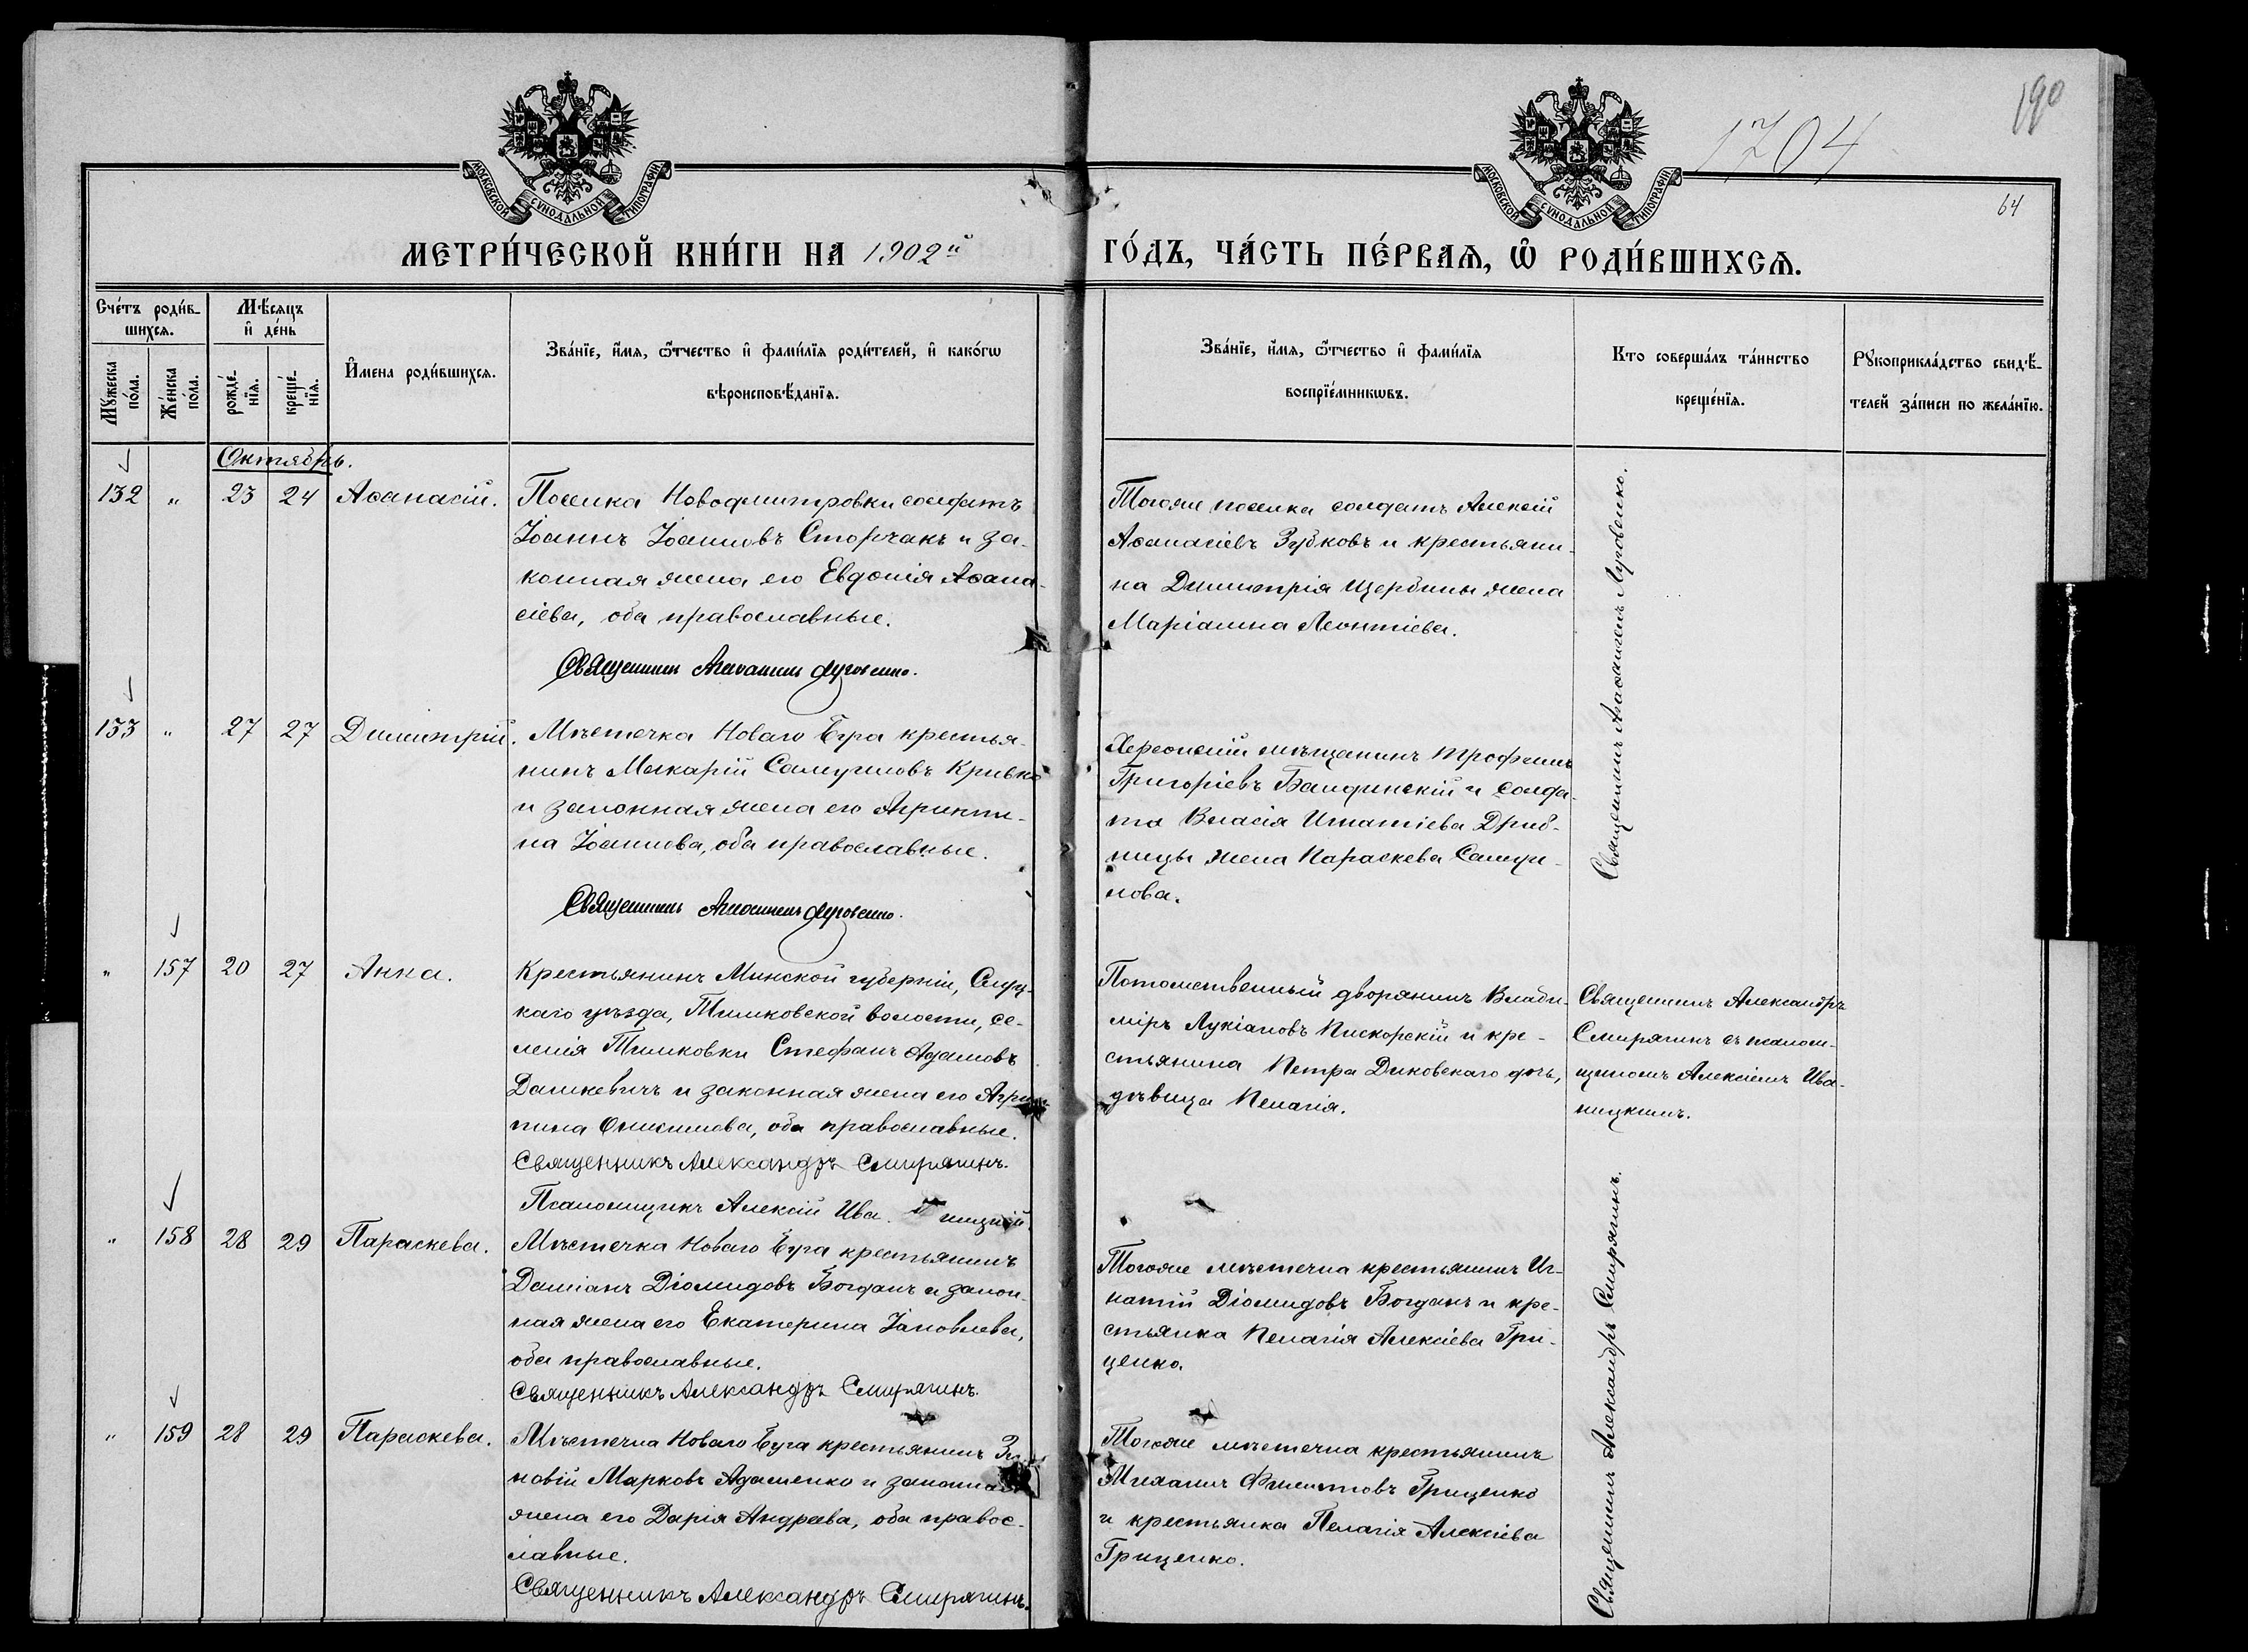 1704
190
64
МОСКОВСКОЙ СУНОДАЛЬНОЙ ТИПОГРАФІИ
МОСКОВСКОЙ СУНОДАЛЬНОЙ ТИПОГРАФІИ
МЕТРИ́ЧЕСКОЙ КНИ́ГИ НА 1902й ГО́ДЪ, ЧА́СТЬ ПЕ́РВАѦ, Ѡ҆ РОДИ́ВШИХСѦ.
Сче́тъ роди́в-
шихсѧ.
Мꙋ́жеска по́ла.
Же́нска по́ла.
Мѣ́сѧцъ и҆ де́нь
рожде́-нїѧ.
креще́-нїѧ.
И҆мена роди́вшихсѧ.
Зва́нїе, и҆́мѧ, ѻ҆́тчество и҆ фами́лїѧ роди́телей, и҆ како́гѡ
вѣроисповѣ́данїѧ.
Зва́нїе, и҆́мѧ, ѻ҆́тчество и҆ фами́лїѧ
воспрїе́мникѡвъ.
Кто соверша́лъ та́инство
креще́нїѧ.
Рꙋкоприкла́дство свидѣ́-
телей за́писи по жела́нїю.
Октябрь.
132 " 23 24 Аѳанасій.
Поселка Новодмитровки солдатъ
Іоаннъ Іоанновъ Сторчакъ и за-
конная жена его Евдокія Аѳана-
сіева, оба православные.
Священникъ Аѳанасій Луговенко.
Тогоже поселка солдатъ Алексій
Аѳанасіевъ Зубковъ и крестьяни-
на Димитрія Щербины жена
Маріанна Леонтіева.
Священникъ Луговенко.
133 " 27 27 Димитрій.
Мѣстечка Новаго Буга крестья-
нинъ Макарій Самуиловъ Кривко
и законная жена его Агриппи-
на Іоаннова, оба православные.
Священникъ Луговенко.
Херсонскій мѣщанинъ Трофимъ
Григоріевъ и солда-
та Власія Игнатіева Дриб-
ницы жена Параскева Самуи-
лова.
" 157 20 27 Анна.
Крестьянинъ Минской губерніи, Слуц-
каго уѣзда, Тимковской волости, се-
ленія Тимковки Стефанъ Адамовъ
Дашкевичъ и законная жена его Агрип-
пина Онисимова, оба православные.
Священникъ Александръ Смирягинъ.
Псаломщикъ Алексій Ива ницкій.
Потомственный дворянинъ Влади-
міръ Лукіановъ Пискорскій и кре-
стьянина Петра Диковскаго дочь,
дѣвица Пелагія.
Священникъ Александръ
Смирягинъ съ псалом-
щикомъ Алексіемъ Ива-
ницкимъ.
" 158 28 29 Параскева.
Мѣстечка Новаго Буга крестьянинъ
Даміанъ Діомидовъ Богданъ и закон-
ная жена его Екатерина Іаковлева,
оба православные.
Священникъ Александръ Смирягинъ.
Тогоже мѣстечка крестьянинъ Иг-
натій Діомидовъ Богданъ и кре-
стьянка Пелагія Алексіева Гри-
ценко.
Священникъ Александръ Смирягинъ.
" 159 28 29 Параскева.
Мѣстечка Новаго Буга крестьянинъ Зи-
новій Марковъ Адаменко и законная
жена его Дарія Андреева, оба правос-
лавные.
Священникъ Александръ Смирягинъ.
Тогоже мѣстечка крестьянинъ
Михаилъ Гриценко
и крестьянка Пелагія Алексіева
Гриценко.